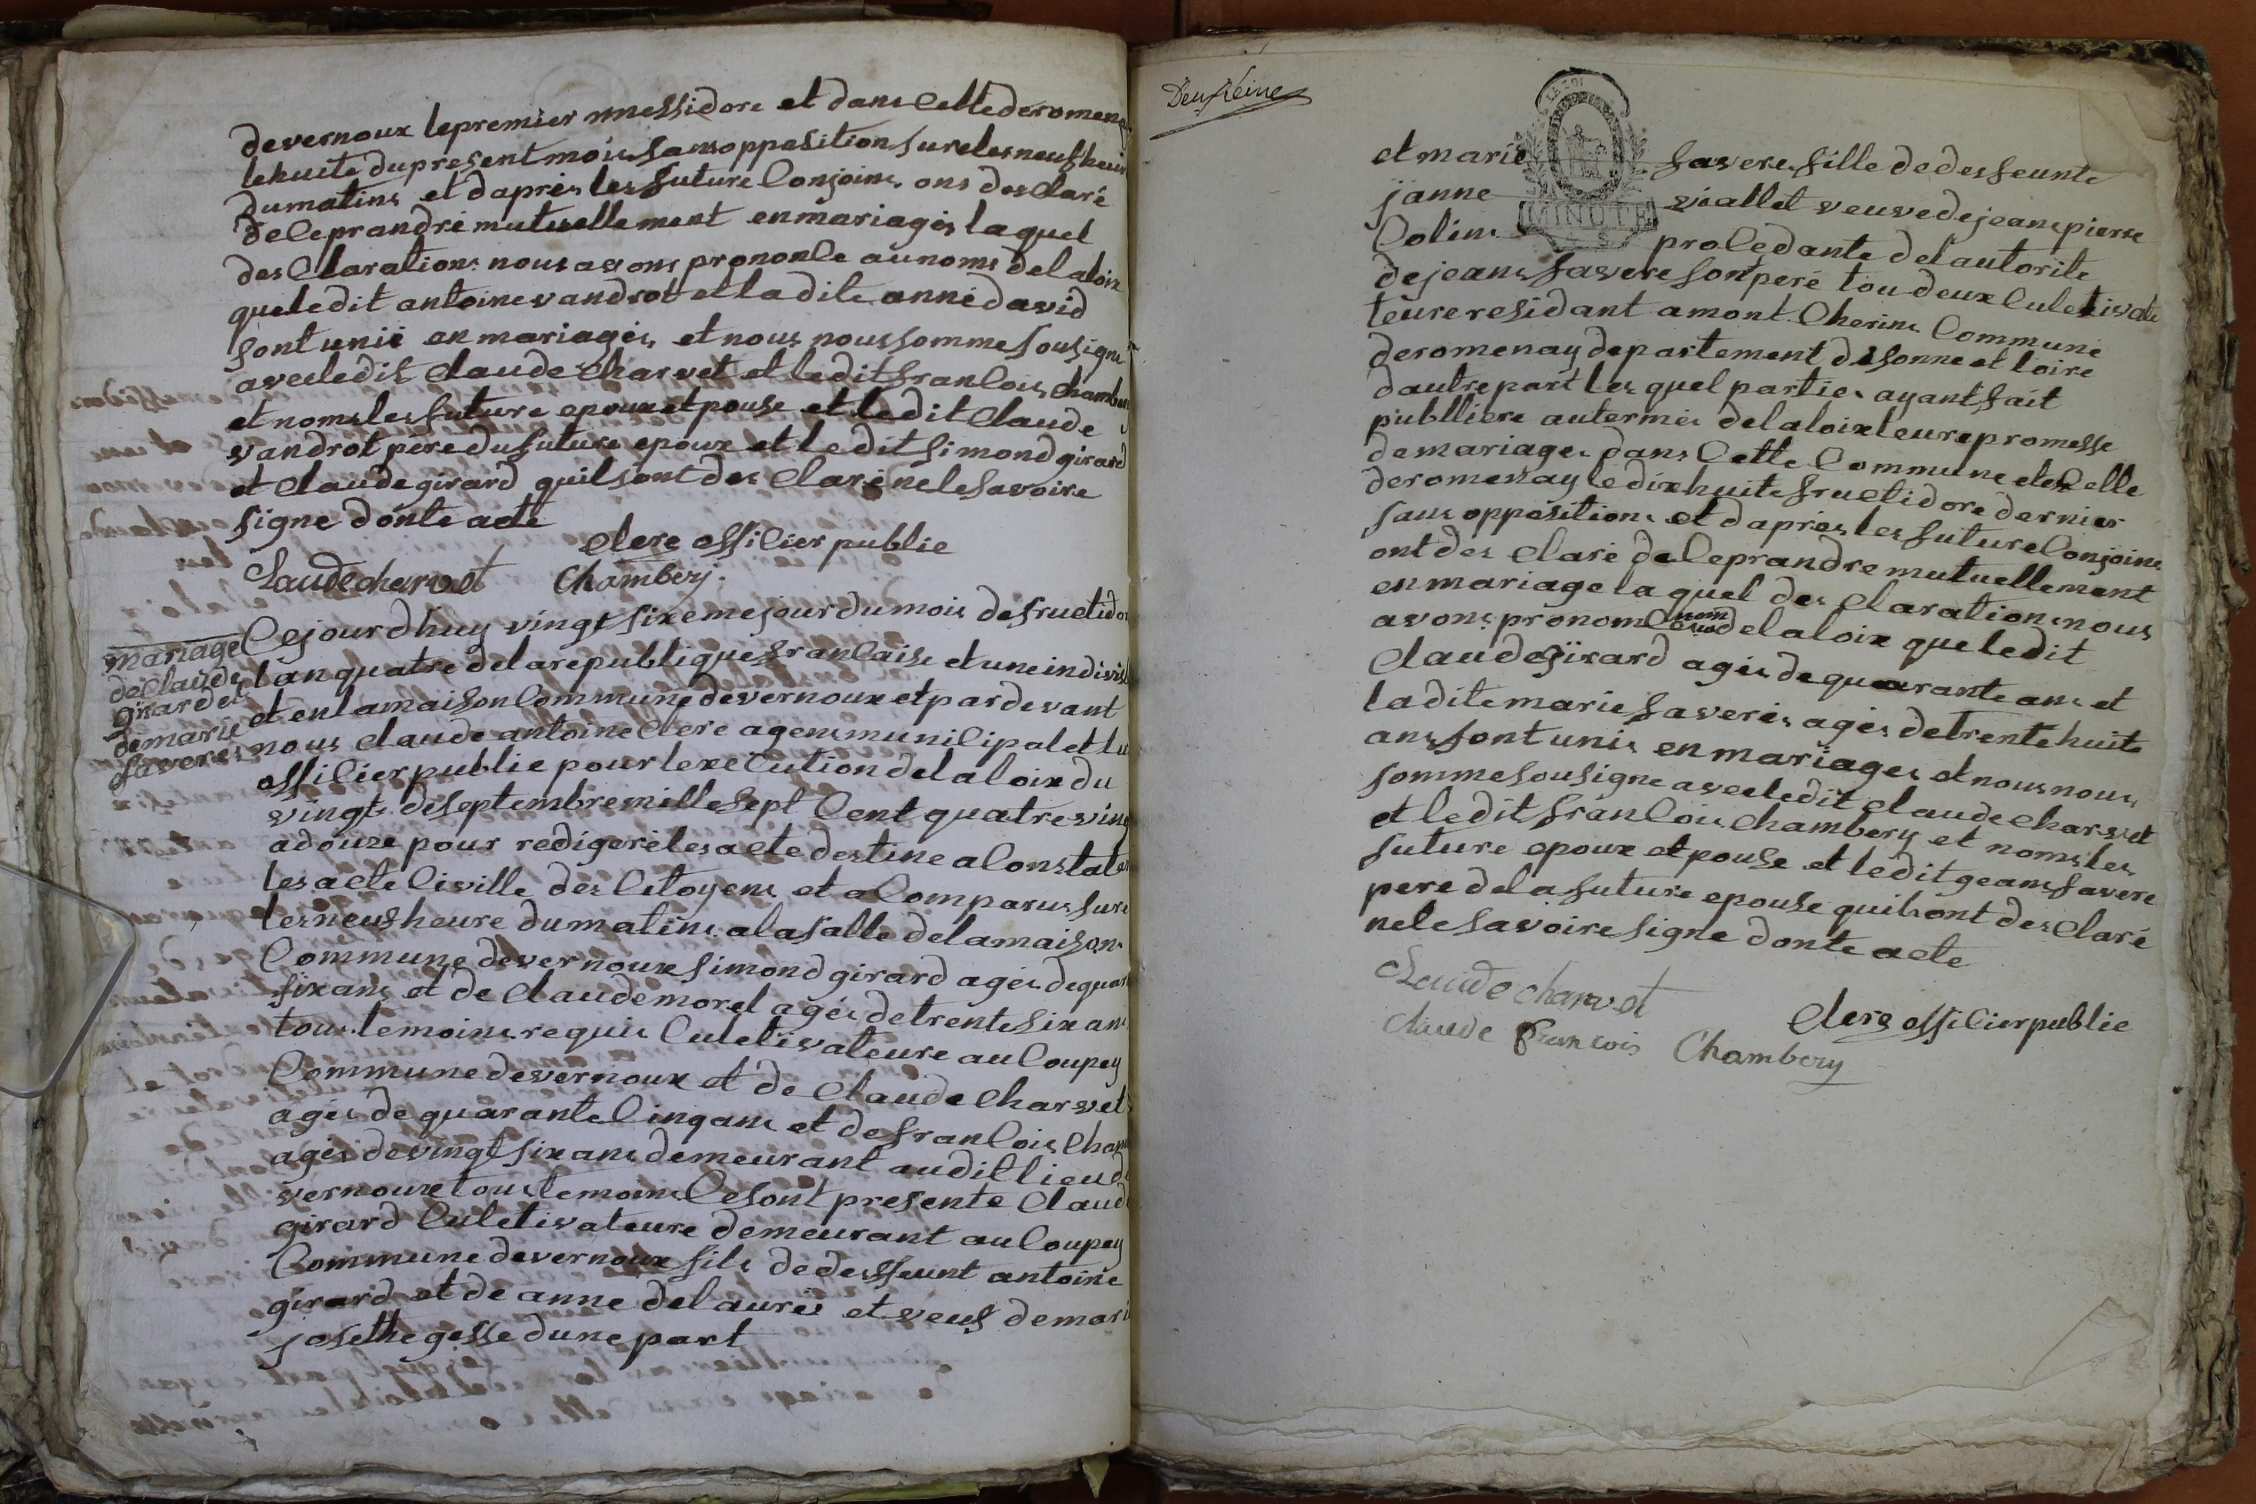 devernoux lepremier messidore et dans Cette deromenay
lehuite dupresent mois sans opposition sureles neuf heure
dumatins et daprès les future Conjoins ons des Claré
deCeprandré mutuellement enmariagés la quel
des Clarations nous avons prononCe aunoms delaloix
queledit antoine vandrot et la dite anné david
sont unié en mariagés et nous nous somme sousigne
avecledit Claude Charvet et ledit franCois Chambery
et noms les future epoux et pouse et ledit Claude
vandrot père dufuture epoux et le dit simond girard
et Claude girard quil sont des Claré ne le savoire
signe donte acte
Clere offiCier publie
Claude charvet Chambery
mariage
de Claude
girard et
de marie
faveres
Ce jour dhuy vingt sixeme jour du mois de fructidor
lan quatre de la republique franCaise et une indivisi
et en lamaison Commune devernoux et par devant
nous Claude antoine Clere agens muniCipal et lu
offiCier publie pour lexeCution delaloix du
vingt deseptembre mille sept Cent quatre ving
adouze pour redigeré les acte destine aConstater
les acte Civille des Citoyens et aComparus sure
les neuf heure dumatins alasalle delamaisons
Commune devernoux simond girard agés dequar
six ans et de Claude morel agés detrente six ans
tous temoins requis Culetivateure au Coupey
Commune devernoux et de Claude Charvet
agés de quarante Cinqans et de franCois Cham
agés devingt six ans demeurant au dit lieu de
vernoux tous temoins Cesont presente Claude
girard Culetivateure demeurant au Coupey
Commune devernoux fils de deffeunt antoine
girard et de anne delauréi et veuf demarie
josethe gesse dune part
Deuxieme
et marie favere fille de desfeunte
janne viallet veuve dejeans pierre
Colins proCedante del autorite
MINUTE
dejeans favere sonperé tou deux Culetivate
teure residant amont Cherins Commune
deromenay departement desonne et loire
dautre part les quel parties ayant fait
publliere autermés delaloix leure promesse
de mariages dans Cette Commune et en Celle
deromenay le dix huite fructidore dernier
sans oppositions et daprès les future Conjoins
ont des Claré deCeprandre mutuellement
en mariage la quel des Clarations nous
avons pronomCe aunom delaloix que ledit
Claude girard agés de quarante ans et
ladite marie faverés agés detrente huite
ans sont unis en mariages et nous nous
somme sousigne avecledit Claude charvet
et ledit franCois Chambery et noms les
future epoux et pouse et ledit geans favere
pere dela future epouse quil sont des Claré
nele savoire signe donte acte
Claude charvet
Clere offiCier publie
Claude francois Chambery